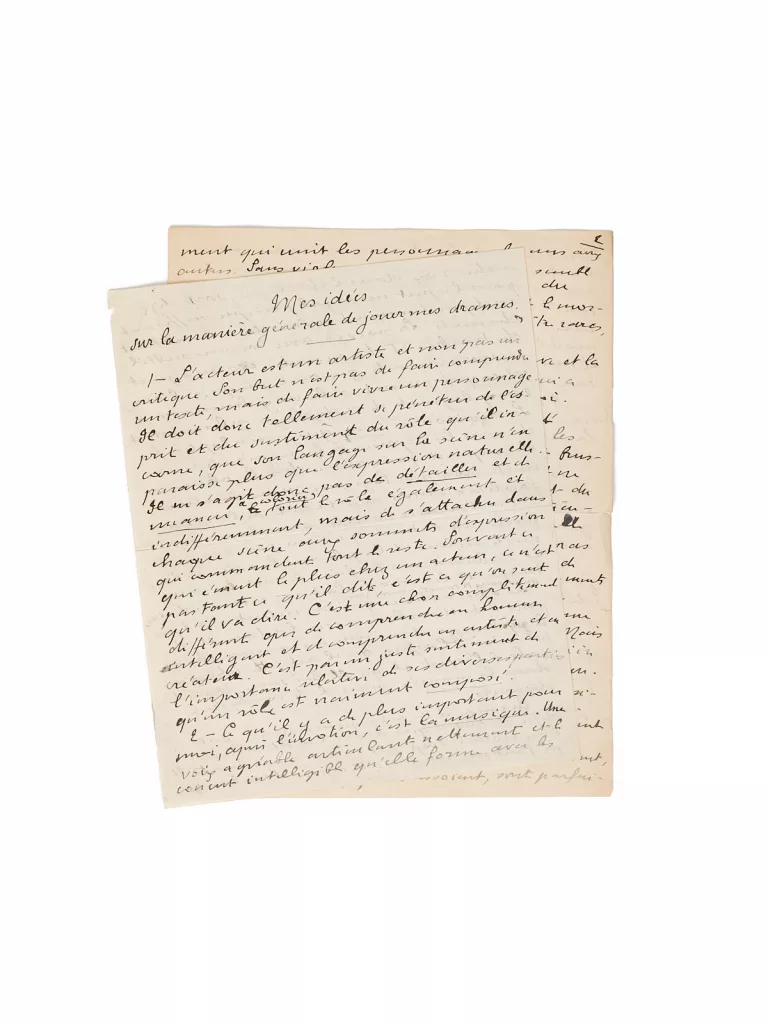 2
ment qui unit les personnages les uns aux
autres. Sans
semble
du
Mes idées
sur la manière générale de jouer mes drames.
1 — L'acteur est un artiste et non pas un
critique. Son but n'est pas de faire comprendre
un texte, mais de faire vivre un personnage.
Il doit donc tellement se pénétrer de l'es-
prit et du sentiment du rôle qu'il in-
carne, que son langage sur la scène n'en
paraisse plus que l'expression naturelle.
Il ne s'agit donc pas de détailler et de
nuancer, tout le rôle également et
indifféremment, mais de s'attacher dans
chaque scène aux sommets d'expression
qui commandent tout le reste. Souvent ce
qui émeut le plus chez un acteur, ce n'est pas
pas tant ce qu'il dit, c'est ce qu'on sent
qu'il va dire. C'est une chose complètement
différente que de comprendre en homme
intelligent et de comprendre en artiste et en
créateur. C'est par un juste sentiment de
l'importance relative de ses diverses parties
qu'un rôle est vraiment composé.
2 — Ce qu'il y a de plus important pour
moi, après l'émotion, c'est la musique. Une
voix agréable articulant nettement et le
concert intelligible qu'elle forme avec les
rares,
et la
les
du
Mais
sont parfai-